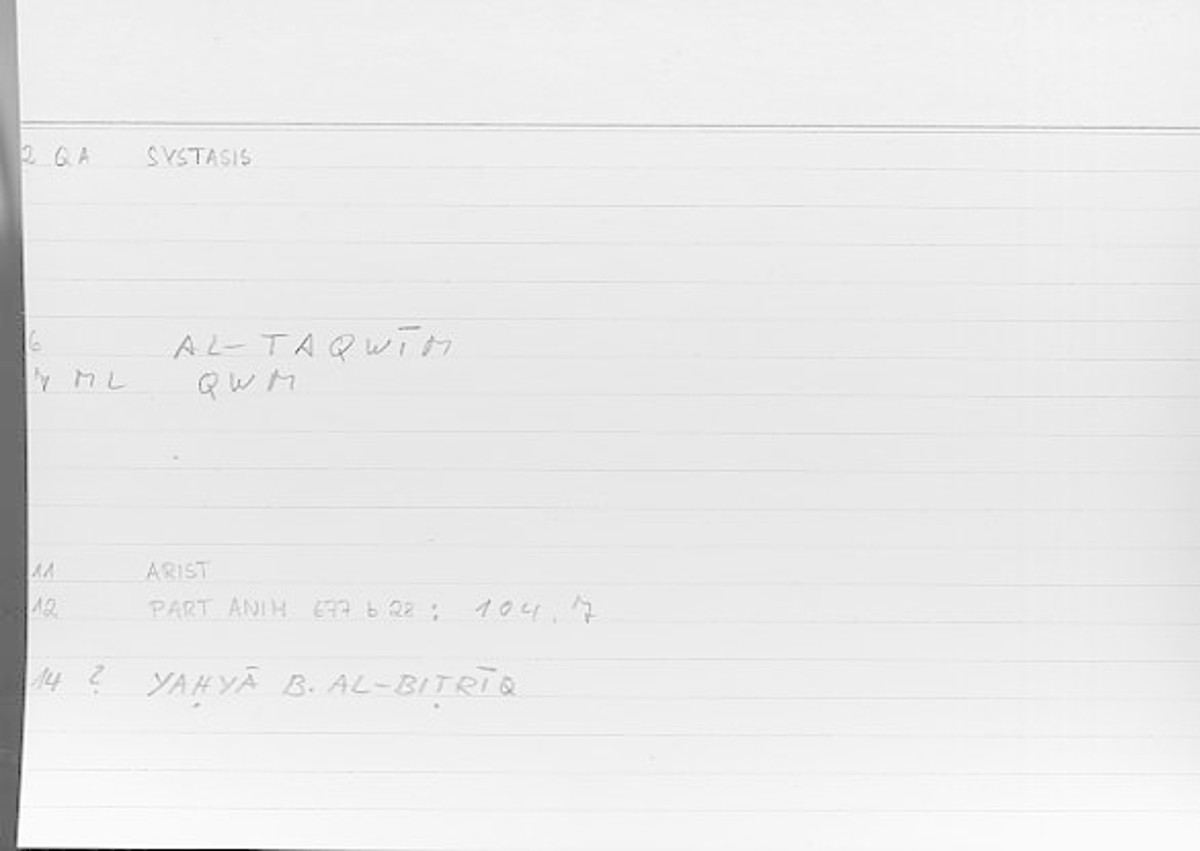 2 QA SYSTASIS
6 AL-TAQWĪM
7 ML QWM
11 ARIST
12 PART ANIM 677 b 28 : 104, 7
14 ? YAḤYĀ B. AL-BIṬRĪQ